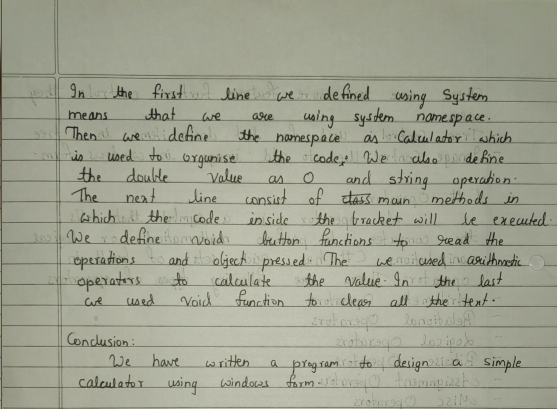 In the first line we defined using System
means that we are using system namespace.
Then we define the namespace as Calculator which
is used to organise the code. We also define
the double value as 0 and string operation.
The next line consist of main methods in
which the code inside the bracket will be executed.
We define void button functions to read the
operations and object pressed. The we used arithmetic
operators to calculate the value. In the last
we used void function to clear all the text.
Conclusion:
We have written a program to design a simple
calculator using windows form.